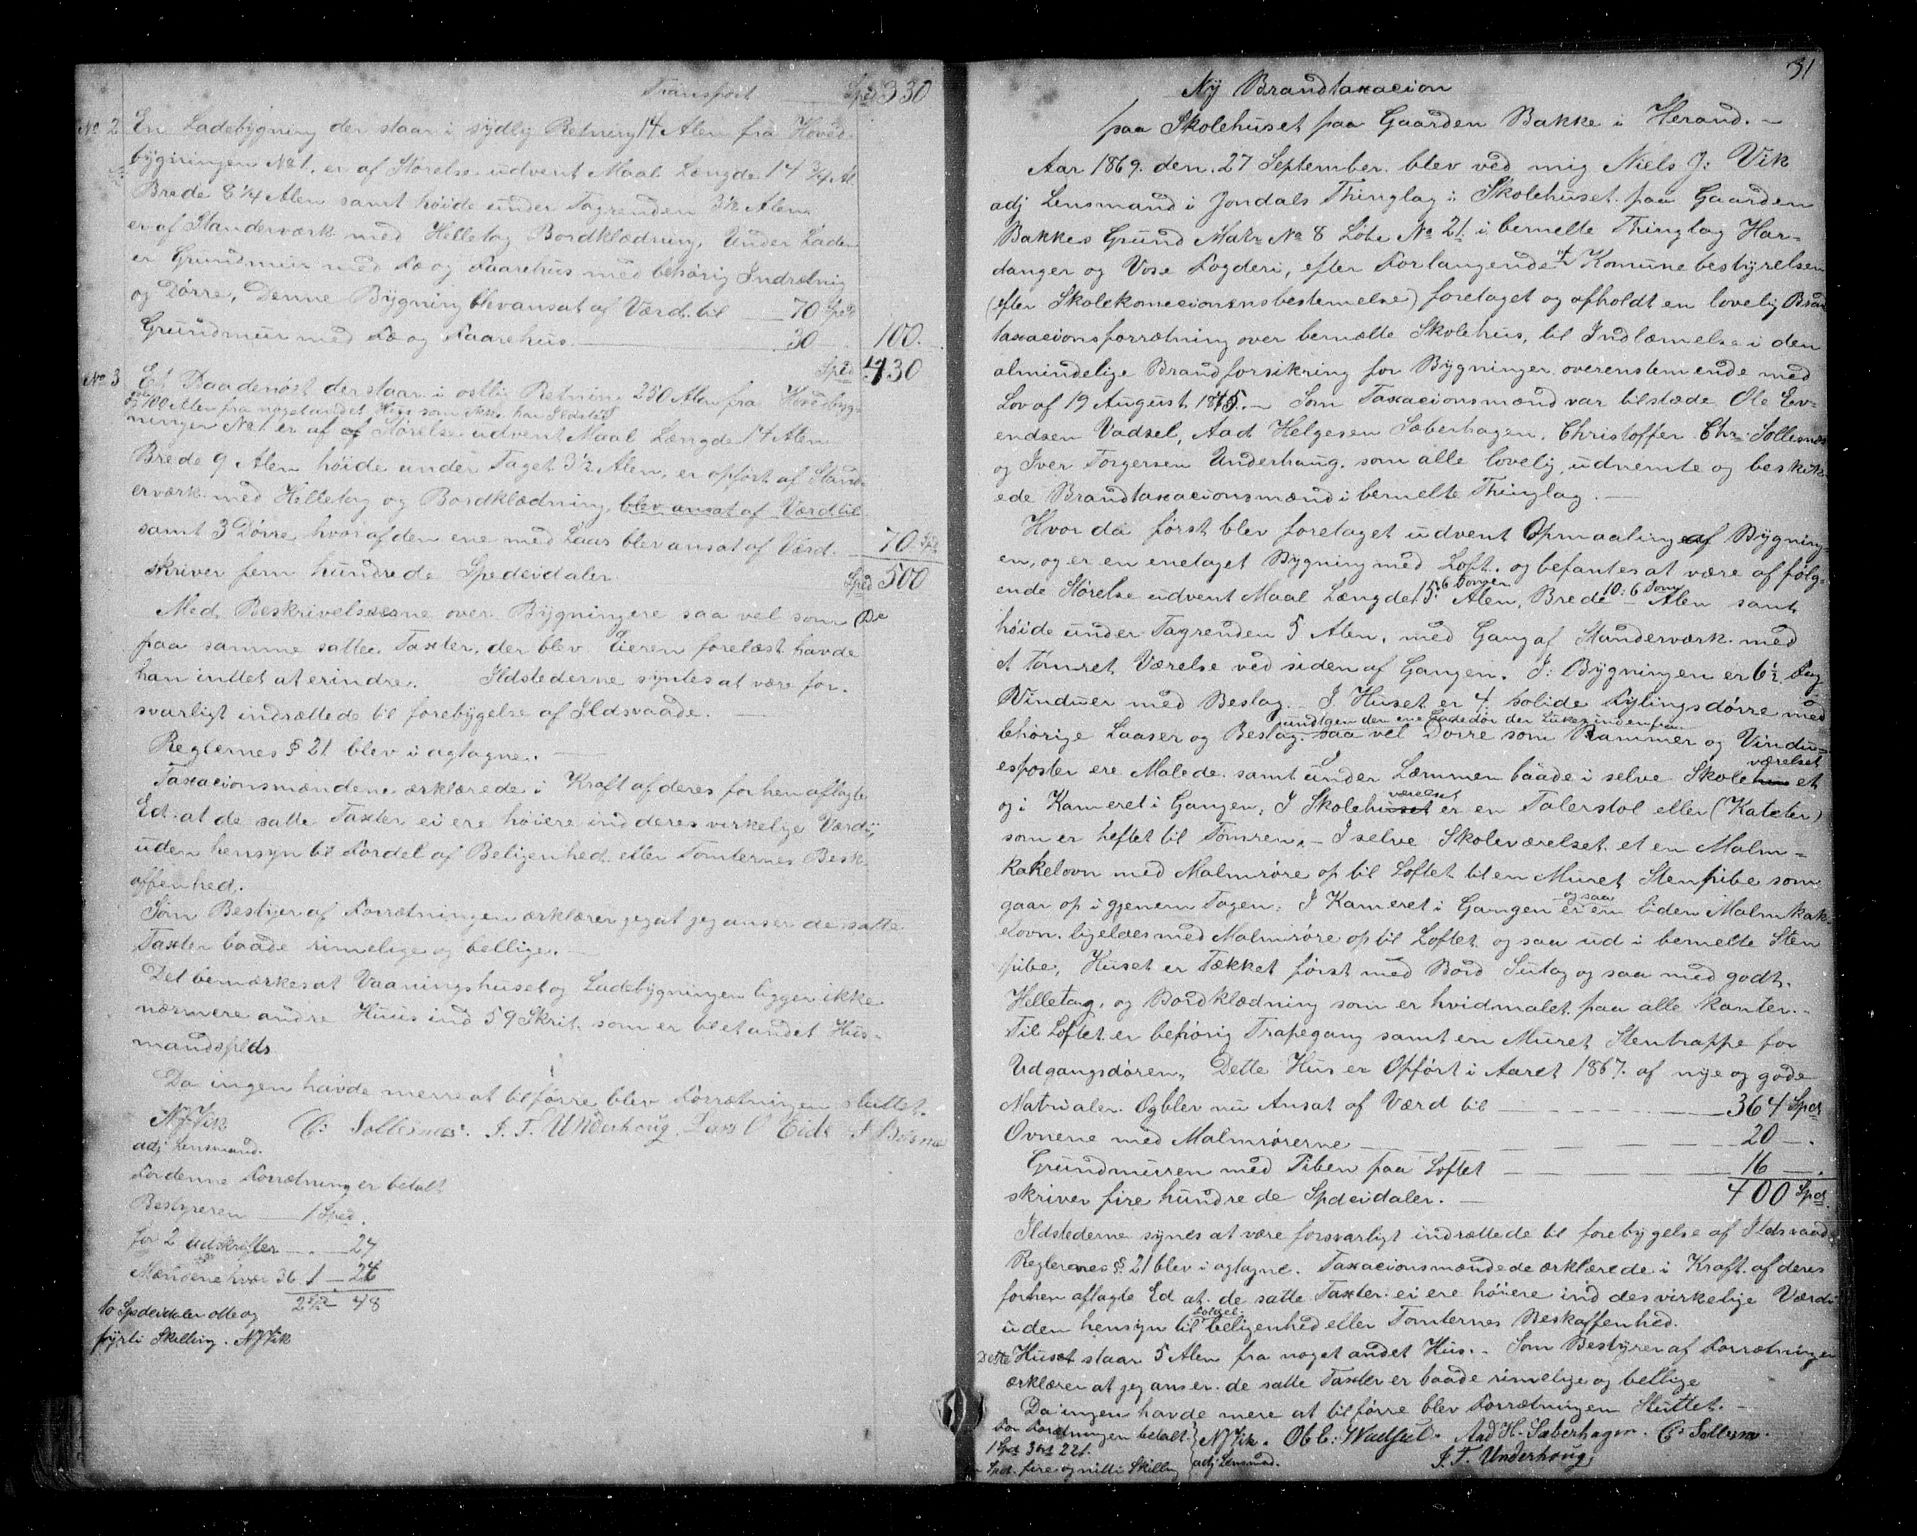 Transport Spd 330
No 2 En Ladebygning der staar i sydlig Retning 14 Alen fra Hoved-
bygningen No 1, er af Størelse udvent Maal Længde 14 3/4 Al
Brede 8 1/4 Alen samt høide under Tagrenden 3 1/2 Alen,
er af Standerværk med Helletag Bordklædning, Under Laden
er Grundmur med Fæ og Faarehus med behørig Indretnig
og Dørre, Denne Bygning blev ansat af Værd til 70 Spd
Grundmur med Fæ og Faarehus 30 100.
Spd 430
No 3 Et Baadenøst der staar i østlig Retning 250 Alen fra Hovedbyg-
og 100 Alen fra noget andet Hus som ikke har Ildsted
ningen No 1 er af af Størelse udvent Maal Længde 14 Alen
Brede 9 Alen høide under Taget 3 1/2 Alen, er opført af Stand-
erværk med Helletag og Bordklædning, blev ansat af Værd til
samt 3 Dørre hvoraf den ene med Laas blev ansat af Værd. 70 Spd
skriver fem hundrede Spedeidaler Spd 500
Med Beskrivelserne over Bygningere saa vel som De
paa samme satte Taxter, der blev Eieren forelæst havde
han inttet at erindre. Ildstederne syntes at være for-
svarligt indrættede til forebygelse af Ildsvaade.
Reglernes § 21 blev i agtagne.
Taxacionsmændene ærklærede i Kraft af deres forhen aflagte
Ed at de satte Taxter ei ere høiere ind deres virkelige Værdi
uden hensyn til Fordel af Beligenhed eller Tomternes Besk-
affenhed.
Som Bestyer af Forrætningen ærklærer jeg at jeg anser de satte
Taxter baade rimelige og bellige.
Det bemærkes at Vaaningshuset og Ladebygningen ligger ikke
nærmere andre Huus ind 59 Skrit som er blet andet Hus-
mandsplds
Da ingen havde merre at tilførre blev Forrætningen sluttet.
NJVik C: Sollesnes. I. T. Underhoug, Lars O Eide
adj Lensmand.
For denne Forrætning er betalt
Bestyreren 1 Spd.
for 2 udskrifter 24
Mændene hver 36 s 1 - 24
2 Spd 48
to Spedeidaler otte og
fyrti Skilling. NJVik
31
Ny Brandtaxacion
paa Skolehuset paa Gaarden Bakke i Herand. -
Aar 1869 den 27 September blev ved mig Niels J: Vik
adj Lensmand i Jondals Thinglag i Skolehuset paa Gaarden
Bakkes Grund Matr No 8 Løbe No 21 i bemelte Thinglag Har-
danger og Vose Fogderi, efter Forlangende af Komune bestyrelsen
(efter Skolekomecionensbestemelse) foretaget og afholdt en lovelig Brand
taxacionsforrætning over bemælte Skolehus, til Indlæmelse i den
almindelige Brandforsikring for Bygninger overenstemende med
Lov af 19 August 1845. - Som Taxacionsmænd var tilstæde Ole Ev-
endsen Vadsel, Aad Helgesen Sæberhagen, Christoffer Chr: Sollesnes
og Iver Torgersen Underhaug, som alle lovelig udnemte og beskik-
ede Brandtaxacionsmænd i bemelte Thinglag.
Hvor da først blev foretaget udvent Opmaaling af Bygning-
en, og er en enetaget Bygning med Loft, og befantes at være af følg-
ende Størelse udvent Maal Længde 15: 6 Tomer Alen, Brede 10: 6 Tom Alen samt
høide under Tagrenden 5 Alen, med Gang af Standerværk med
et Tømret Værelse ved siden af Gangen. I Bygningen er 6 1/2 Fag
Vinduer med Beslag. I Huset er 4 solide Fylingsdørre med
undtgen den ene Gadedør der Lukes indenfra
behørige Laaser og Beslag, saa vel Dørre som Rammer og Vindu-
esposter ere Malede samt under Læmmen baade i selve Skolehus værelset et
og i Kameret i Gangen, I Skolehuset værelset er en Talerstol eller (Kateter)
som er heftet til Tømren, - I selve Skoleværelset et en Malm-
kakelovn med Malmrøre op til Loftet til en Muret Stenpibe som
gaar op igjenem Tagen. I Kameret i Gangen er og saa en liden Malmkak-
elovn ligeldes med Malmrøre op til Loftet og saa ud i bemelte Sten
pibe, Huset er Tækket først med Bord Sutag og saa med godt
Helletag, og Bordklædning som er hvidmalet paa alle kanter. -
Til Loftet er behørig Trapegang samt en Muret Stentrappe for
Udgangsdøren, Dette Hus er Opført i Aaret 1867 af nye og gode
Matrialer. Og blev nu Ansat af Værd til 364 Spd
Ovnene med Malmrørerne 20 -.
Grundmurren med Piben paa Loftet 16 -.
skriver fire hundrede Spdeidaler. - 400 Spd
Ildstederne synes at være forsvarligt indrættede til forebygelse af Ildsvaade
Reglernes § 21 blev i agtagne. Taxacionsmændede ærklærede i Kraft af deres
forhen aflagte Ed at de satte Taxter ei ere høiere ind des virkelige Værdi
uden hensyn til Fordel beligenhed eller Tomternes Beskaffenhed.
Dette Huset staar 5 Alen fra noget andet Hus. - Som Bestyrer af Forrætningen
ærklærer at jeg anser de satte Taxter er baade rimelige og bellige
Da ingen havde mere at tilførre blev Forrætningen Sluttet. -
For Forætningen betalt NJVik. Ol E: Wadsel. Aad H. Sæberhagen. C: Sollesnes.
1 Spd 3 ort 22 s. adj Lensmand. I. T. Underhoug
Spd. fire og nitti Skilling